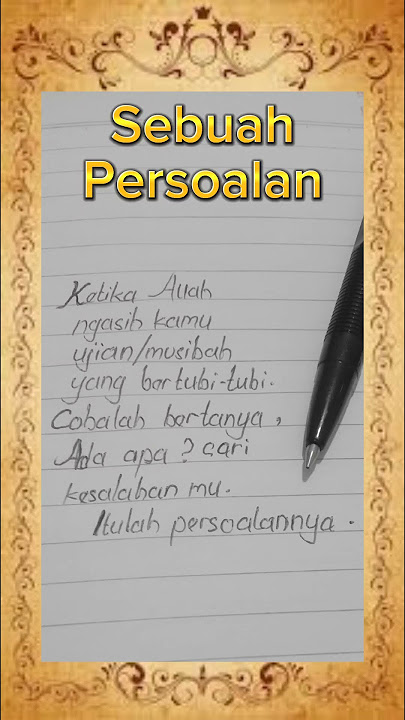 Sebuah
Persoalan
Ketika Allah
ngasih kamu
ujian/musibah
yang bertubi-tubi.
Cobalah bertanya,
Ada apa? cari
kesalahan mu.
Itulah persoalannya.